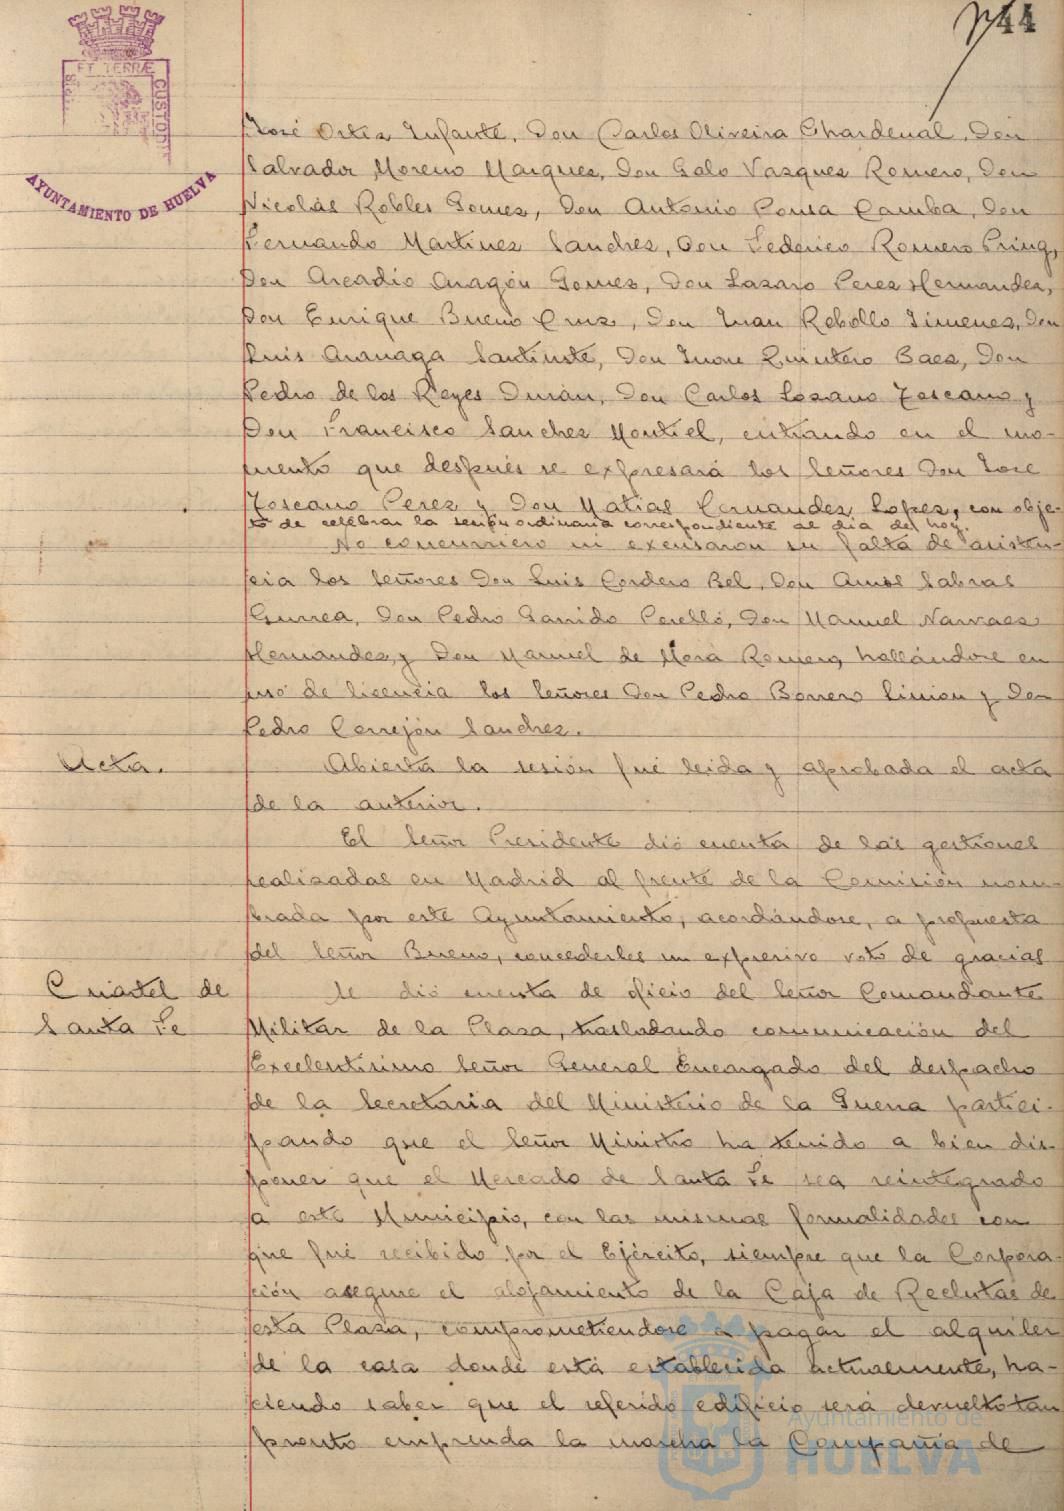 44
ET TERRÆ
CUSTODI
AYUNTAMIENTO DE HUELVA
José Ortiz Infante, Don Carlos Oliveira Chardenal, Don
Salvador Moreno Marquez, Don Galo Vazquez Romero, Don
Nicolás Robles Gomez, Don Antonio Ponsa Camba, Don
Fernando Martinez Sanchez, Don Federico Romero Pring,
Don Arcadio Aragón Gomez, Don Lazaro Perez Hernandez,
Don Enrique Bueno Cruz, Don Juan Rebollo Jimenez, Don
Luis Aranaga Santiuste, Don Juan Quintero Baez, Don
Pedro de los Reyes Durán, Don Carlos Lozano Toscano y
Don Francisco Sanchez Montiel, entrando en el mo-
mento que después se expresará los Señores Don José
Toscano Perez y Don Matias Fernandez Lopez, con obje-
to de celebrar la sesión ordinaria correspondiente al dia de hoy.
No concurriero ni excusaron su falta de asisten-
cia los Señores Don Luis Cordero Bel, Don Amós Sabras
Gurrea, Don Pedro Garrido Perelló, Don Manuel Narvaez
Hernandez y Don Manuel de Mora Romero, hallándose en
uso de licencia los Señores Don Pedro Borrero Limon y Don
Pedro Cerrejón Sanchez.
Acta.
Abierta la sesión fué leida y aprobada el acta
de la anterior.
El Señor Presidente dió cuenta de las gestiones
realizadas en Madrid al frente de la Comisión nom-
brada por este Ayuntamiento, acordándose, a propuesta
del Señor Bueno, concederles un expresivo voto de gracias
Cuartel de
Santa Fe
Se dió cuenta de oficio del Señor Comandante
Militar de la Plaza, trasladando comunicación del
Excelentísimo Señor General Encargado del despacho
de la Secretaria del Ministerio de la Guerra partici-
pando que el Señor Ministro ha tenido a bien dis-
poner que el Mercado de Santa Fe sea reintegrado
a este Municipio, con las mismas formalidades con
que fué recibido por el Ejército, siempre que la Corpora-
ción asegure el alojamiento de la Caja de Reclutas de
esta Plaza, comprometiendose a pagar el alquiler
de la casa donde está establecida actualmente, ha-
ciendo saber que el referido edificio será devuelto tan
pronto emprenda la marcha la Compañia de
Ayuntamiento de
HUELVA